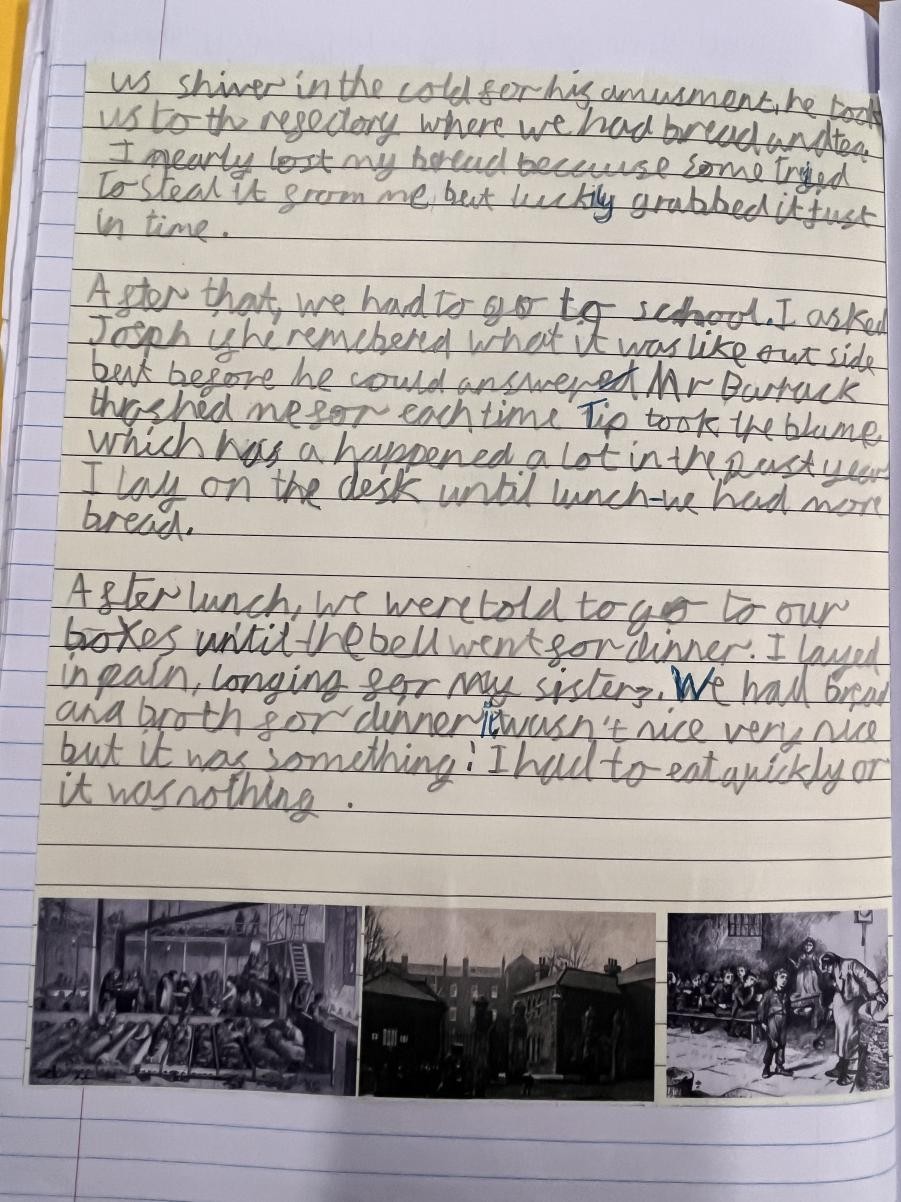 us shiver in the cold for his amusment, he took
us to th refectory where we had bread and tea
I nearly lost my bread because some tryed
to steal it from me, but luckily grabbed it just
in time.
After that, we had to go to school. I asked
Josph if he remebered what it was like outside
but before he could answered Mr Barrack
thrashed me for each time Tip took the blame
which has a happened a lot in the past year
I lay on the desk until lunch-we had more
bread.
After lunch, we were told to go to our
boxes until the bell went for dinner. I layed
in pain, longing for my sisters. We had bread
and broth for dinner it wasn't nice very nice
but it was something! I had to eat quickly or
it was nothing .